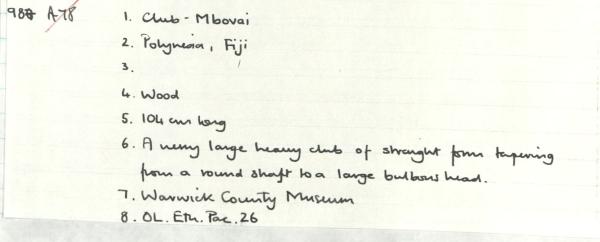 98 A-78
1. Club - Mbovai
2. Polynesia, Fiji
3.
4. Wood
5. 104 cm long
6. A very large heavy club of straight form tapering
from a round shaft to a large bulbous head.
7. Warwick County Museum
8. OL. Eth. Pac. 26